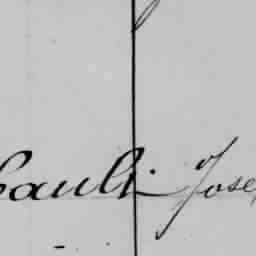 Pauli Jose